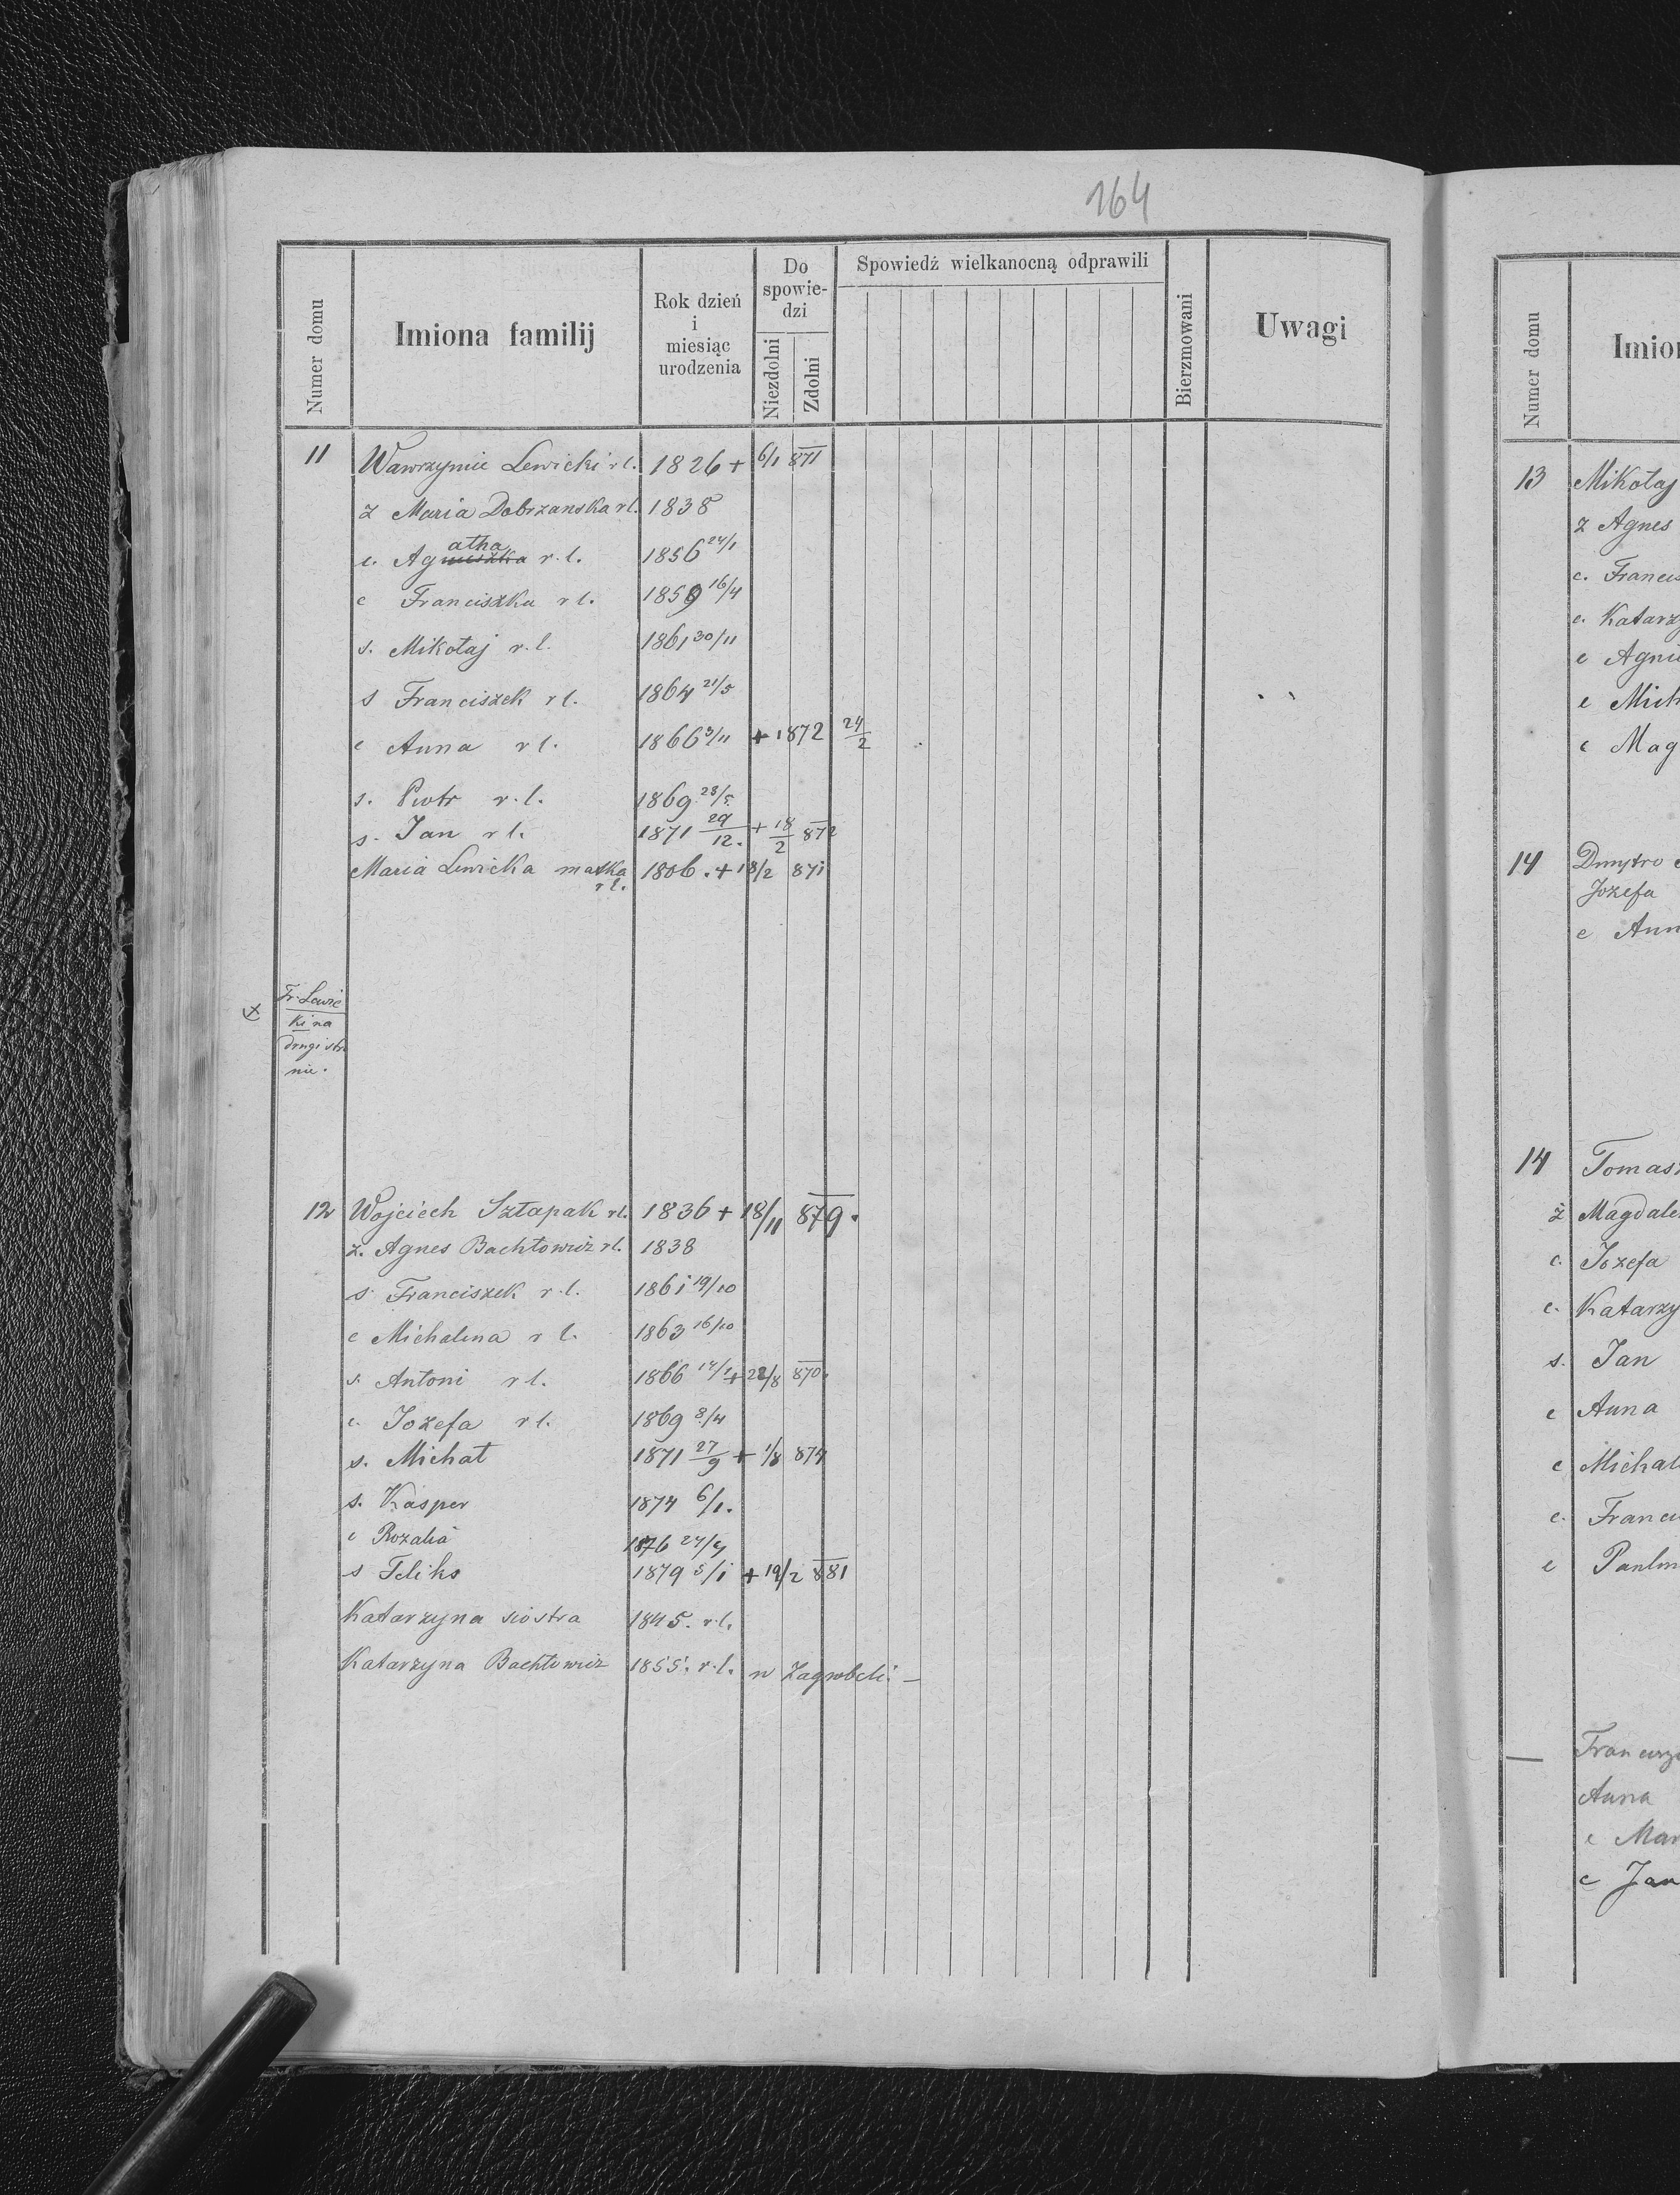 164
Numer domu
Imiona familij
Rok dzień
i
miesiąc
urodzenia
Do
spowie-
dzi
Niezdolni
Zdolni
Spowiedź wielkanocną odprawili
Bierzmowani
Uwagi
11 Wawrzyniec Lewicki rl. 1826 + 6/1 871
ż Maria Dobrzanska rl. 1838
c. Agnieszka atha r.l. 1856 24/1
c Franciszka r l. 1859 16/4
s. Mikołaj r.l. 1861 30/11
s Franciszek r l. 1864 21/5
c Anna r l. 1866 3/11 + 1872 24/2
s. Piotr r.l. 1869 28/5
s. Jan r l. 1871 29/12. + 18/2 872
Maria Lewicka matka 1806. + 18/2 871
r l.
Fr. Lewic
ki na
drugi stro
nie.
12 Wojciech Sztapak rl. 1836 + 18/11 879.
ż. Agnes Bachtowicz rl. 1838
s Franciszek r.l. 1861 19/10
c Michalina r l. 1863 16/10
s. Antoni r l. 1866 + 22/8 870.
c. Jozefa r l. 1869 8/4
s. Michał 1871 27/9 + 1/8 874
s. Kasper 1874 6/1.
c Rozalia 1876 24/9
s Feliks 1879 5/1 + 19/2 881
Katarzyna siostra 1845. r.l.
Katarzyna Bachtowicz 1855. r.l. w Zagrobeli –
Numer domu
Imion
13 Mikołaj
ż Agnes
c. Francis
c. Katarzy
c Agnie
c Mich
c Mag
14 Dmytro
Jozefa
c Ann
14 Tomasz
ż Magdale
c. Jozefa
c. Katarzy
s. Jan
c Anna
c Michal
c. Franci
c Paulin
—
Anna
c Mar
c Jan